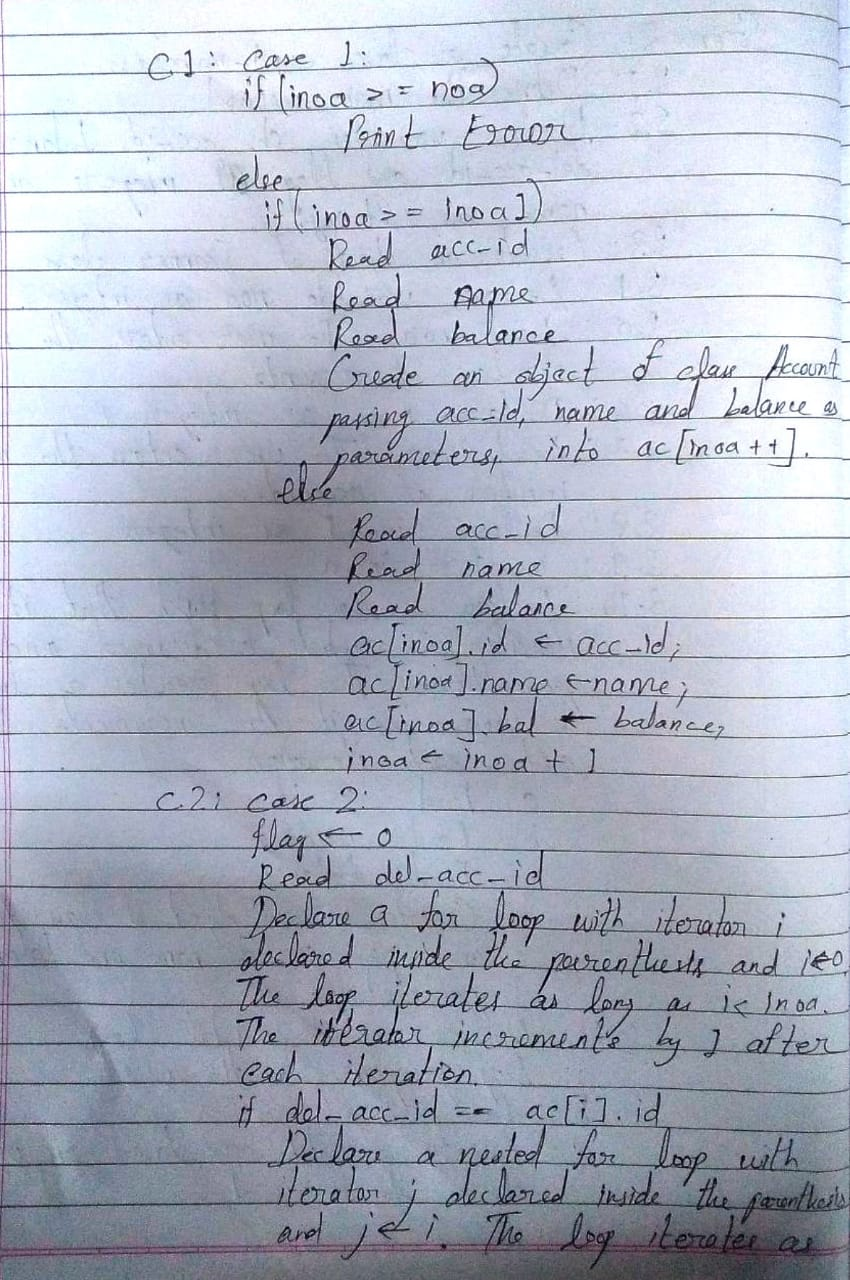 C1: Case 1:
if (inoa >= noa)
Print Error
else
if (inoa >= inoa1)
Read acc-id
Read name
Read balance
Create an object of class Account
passing acc-id, name and balance as
parameters, into ac[inoa++].
else
Read acc-id
Read name
Read balance
ac[inoa].id ← acc-id;
ac[inoa].name ← name;
ac[inoa].bal ← balance;
inoa ← inoa + 1
C2: Case 2:
flag ← 0
Read del-acc-id
Declare a for loop with iterator i
declared inside the parenthesis and i←0.
The loop iterates as long as i < inoa.
The iterator increments by 1 after
each iteration.
if del-acc-id == ac[i].id
Declare a nested for loop with
iterator j declared inside the parenthesis
and j ← i. The loop iterates as